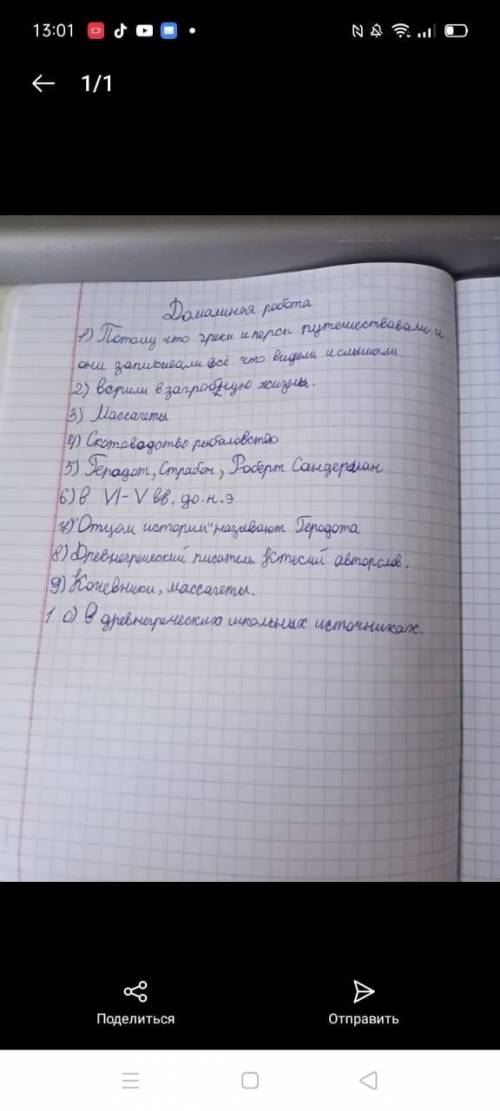 13:01
1/1
Домашняя работа
1) Потому что греки и персы путешествавали и
они записывали всё что видели и слышали.
2) верили в загробную жизнь.
3) Массагеты
4) Скотоводство рыбаловство
5) Герадот, Страбон, Роберт Сандерман
6) в VI-V вв. до.н.э
7) "Отцом истории" называют Геродота
8) Древнегреческий писатель Ктесий авторслов.
9) Кочевники, массагеты.
10) В древнегреческих школьных источниках.
Поделиться
Отправить